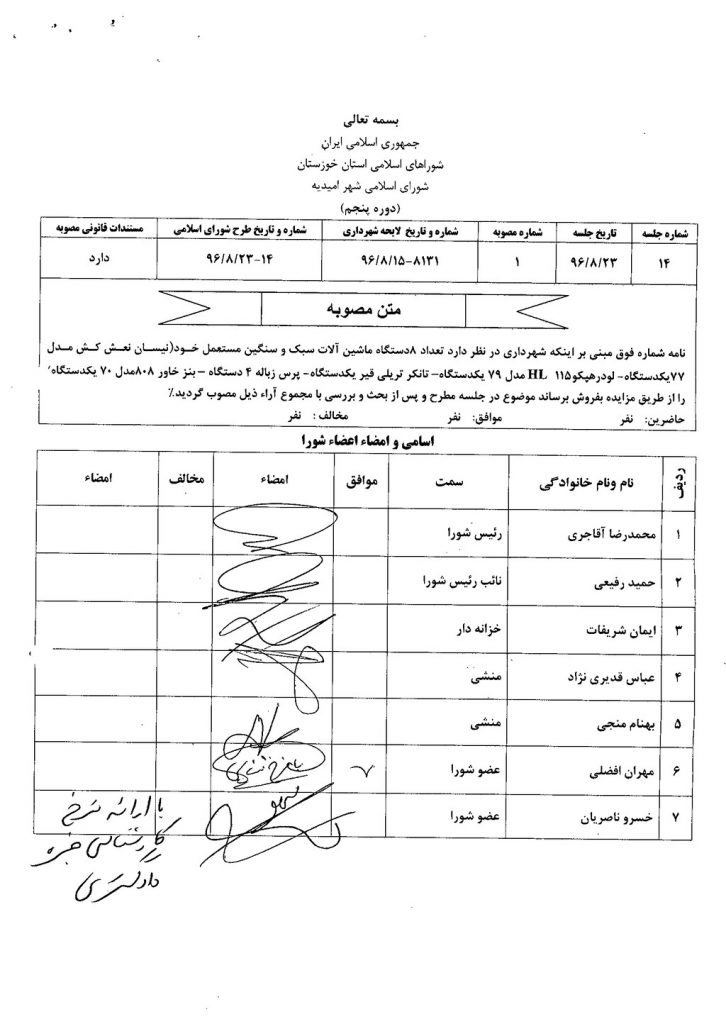 بسمه تعالی
جمهوری اسلامی ایران
شوراهای اسلامی استان خوزستان
شورای اسلامی شهر امیدیه
(دوره پنجم)
شماره جلسه تاریخ جلسه شماره مصوبه شماره و تاریخ لایحه شهرداری شماره و تاریخ طرح شورای اسلامی مستندات قانونی مصوبه
۱۴ ۹۶/۸/۲۳ ۱ ۹۶/۸/۱۵-۸۱۳۱ ۹۶/۸/۲۳-۱۴ دارد
متن مصوبه
نامه شماره فوق مبنی بر اینکه شهرداری در نظر دارد تعداد ۸دستگاه ماشین آلات سبک و سنگین مستعمل خود(نیسان نعش کش مدل
۷۷یکدستگاه- لودرهپکو۱۱۵ HL مدل ۷۹ یکدستگاه– تانکر تریلی قیر یکدستگاه- پرس زباله ۴ دستگاه –بنز خاور ۸۰۸مدل ۷۰ یکدستگاه
را از طریق مزایده بفروش برساند موضوع در جلسه مطرح و پس از بحث و بررسی با مجموع آراء ذیل مصوب گردید.٪
حاضرین: نفر موافق: نفر مخالف: نفر
اسامی و امضاء اعضاء شورا
ردیف نام ونام خانوادگی سمت موافق امضاء مخالف امضاء
۱ محمدرضا آقاجری رئیس شورا
۲ حمید رفیعی نائب رئیس شورا
۳ ایمان شریفات خزانه دار
۴ عباس قدیری نژاد منشی
۵ بهنام منجی منشی
۶ مهران افضلی عضو شورا
۷ خسرو ناصریان عضو شورا
با ارائه نرخ
کارشناسی خبره
دادگستری